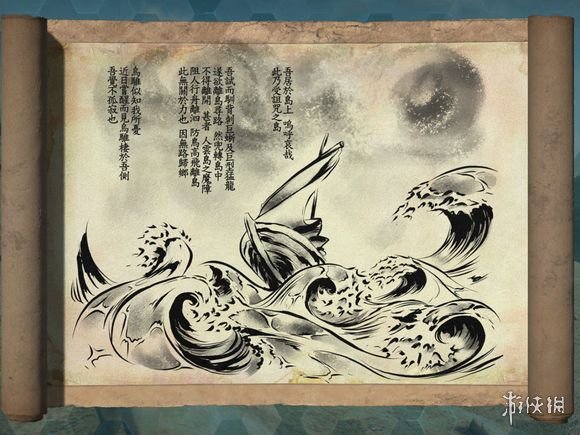 吾居於島上 嗚呼哀哉
此乃受詛咒之島
吾試而馴背刺巨蜥及巨型猛龍
遂欲離島尋路 然兜轉島中
不得離開 甚者 人雲島之魔障
阻人行舟離泅 防鳥高飛離島
此無關於力也 因無路歸鄉
鳥雕似知我所憂
近日嘗醒而見鳥雕棲於吾側
吾覺不孤寂也
游侠网